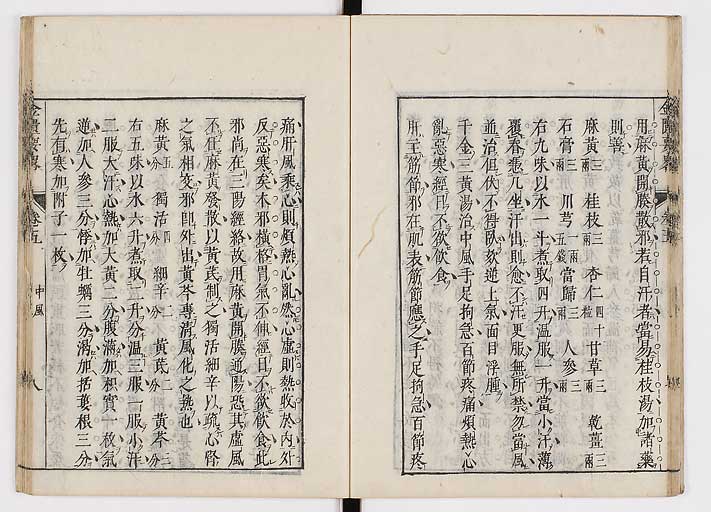 用麻黃開腠散邪若自汗者當易桂枝湯加諸藥
則善
麻黃三兩 桂枝三兩 杏仁四十粒 甘草三兩 乾薑三兩
石膏三兩 川芎五錢 當歸三兩 人參三兩
右九味以水一斗煮取四升溫服一升當小汗薄
覆脊憑几坐汗出則愈不汗更服無所禁勿當風
並治但伏不得臥欬逆上氣面目浮腫
千金三黃湯治中風手足拘急百節疼痛煩熱心
亂惡寒經日不欲飲食
肝主筋節邪在肌表筋節應之手足拘急百節疼
痛肝風乘心則煩熱心亂然心虛則熱收於內外
反惡寒矣木邪橫格胃氣不伸經日不欲飲食此
邪尚在三陽經絡故用麻黃開腠通陽恐其虛風
不任麻黃發散以黃芪制之獨活細辛以疏心腎
之氣相交邪卽外出黃芩專清風化之熱也
麻黃五分 獨活四分 細辛二分 黃芪二分 黃芩三分
右五味以水六升煮取二升分溫三服一服小汗
二服大汗心熱加大黃二分腹滿加枳實一枚氣
逆加人參三分悸加牡蠣三分渴加括蔞根三分
先有寒加附子一枚
卷五
中風
八